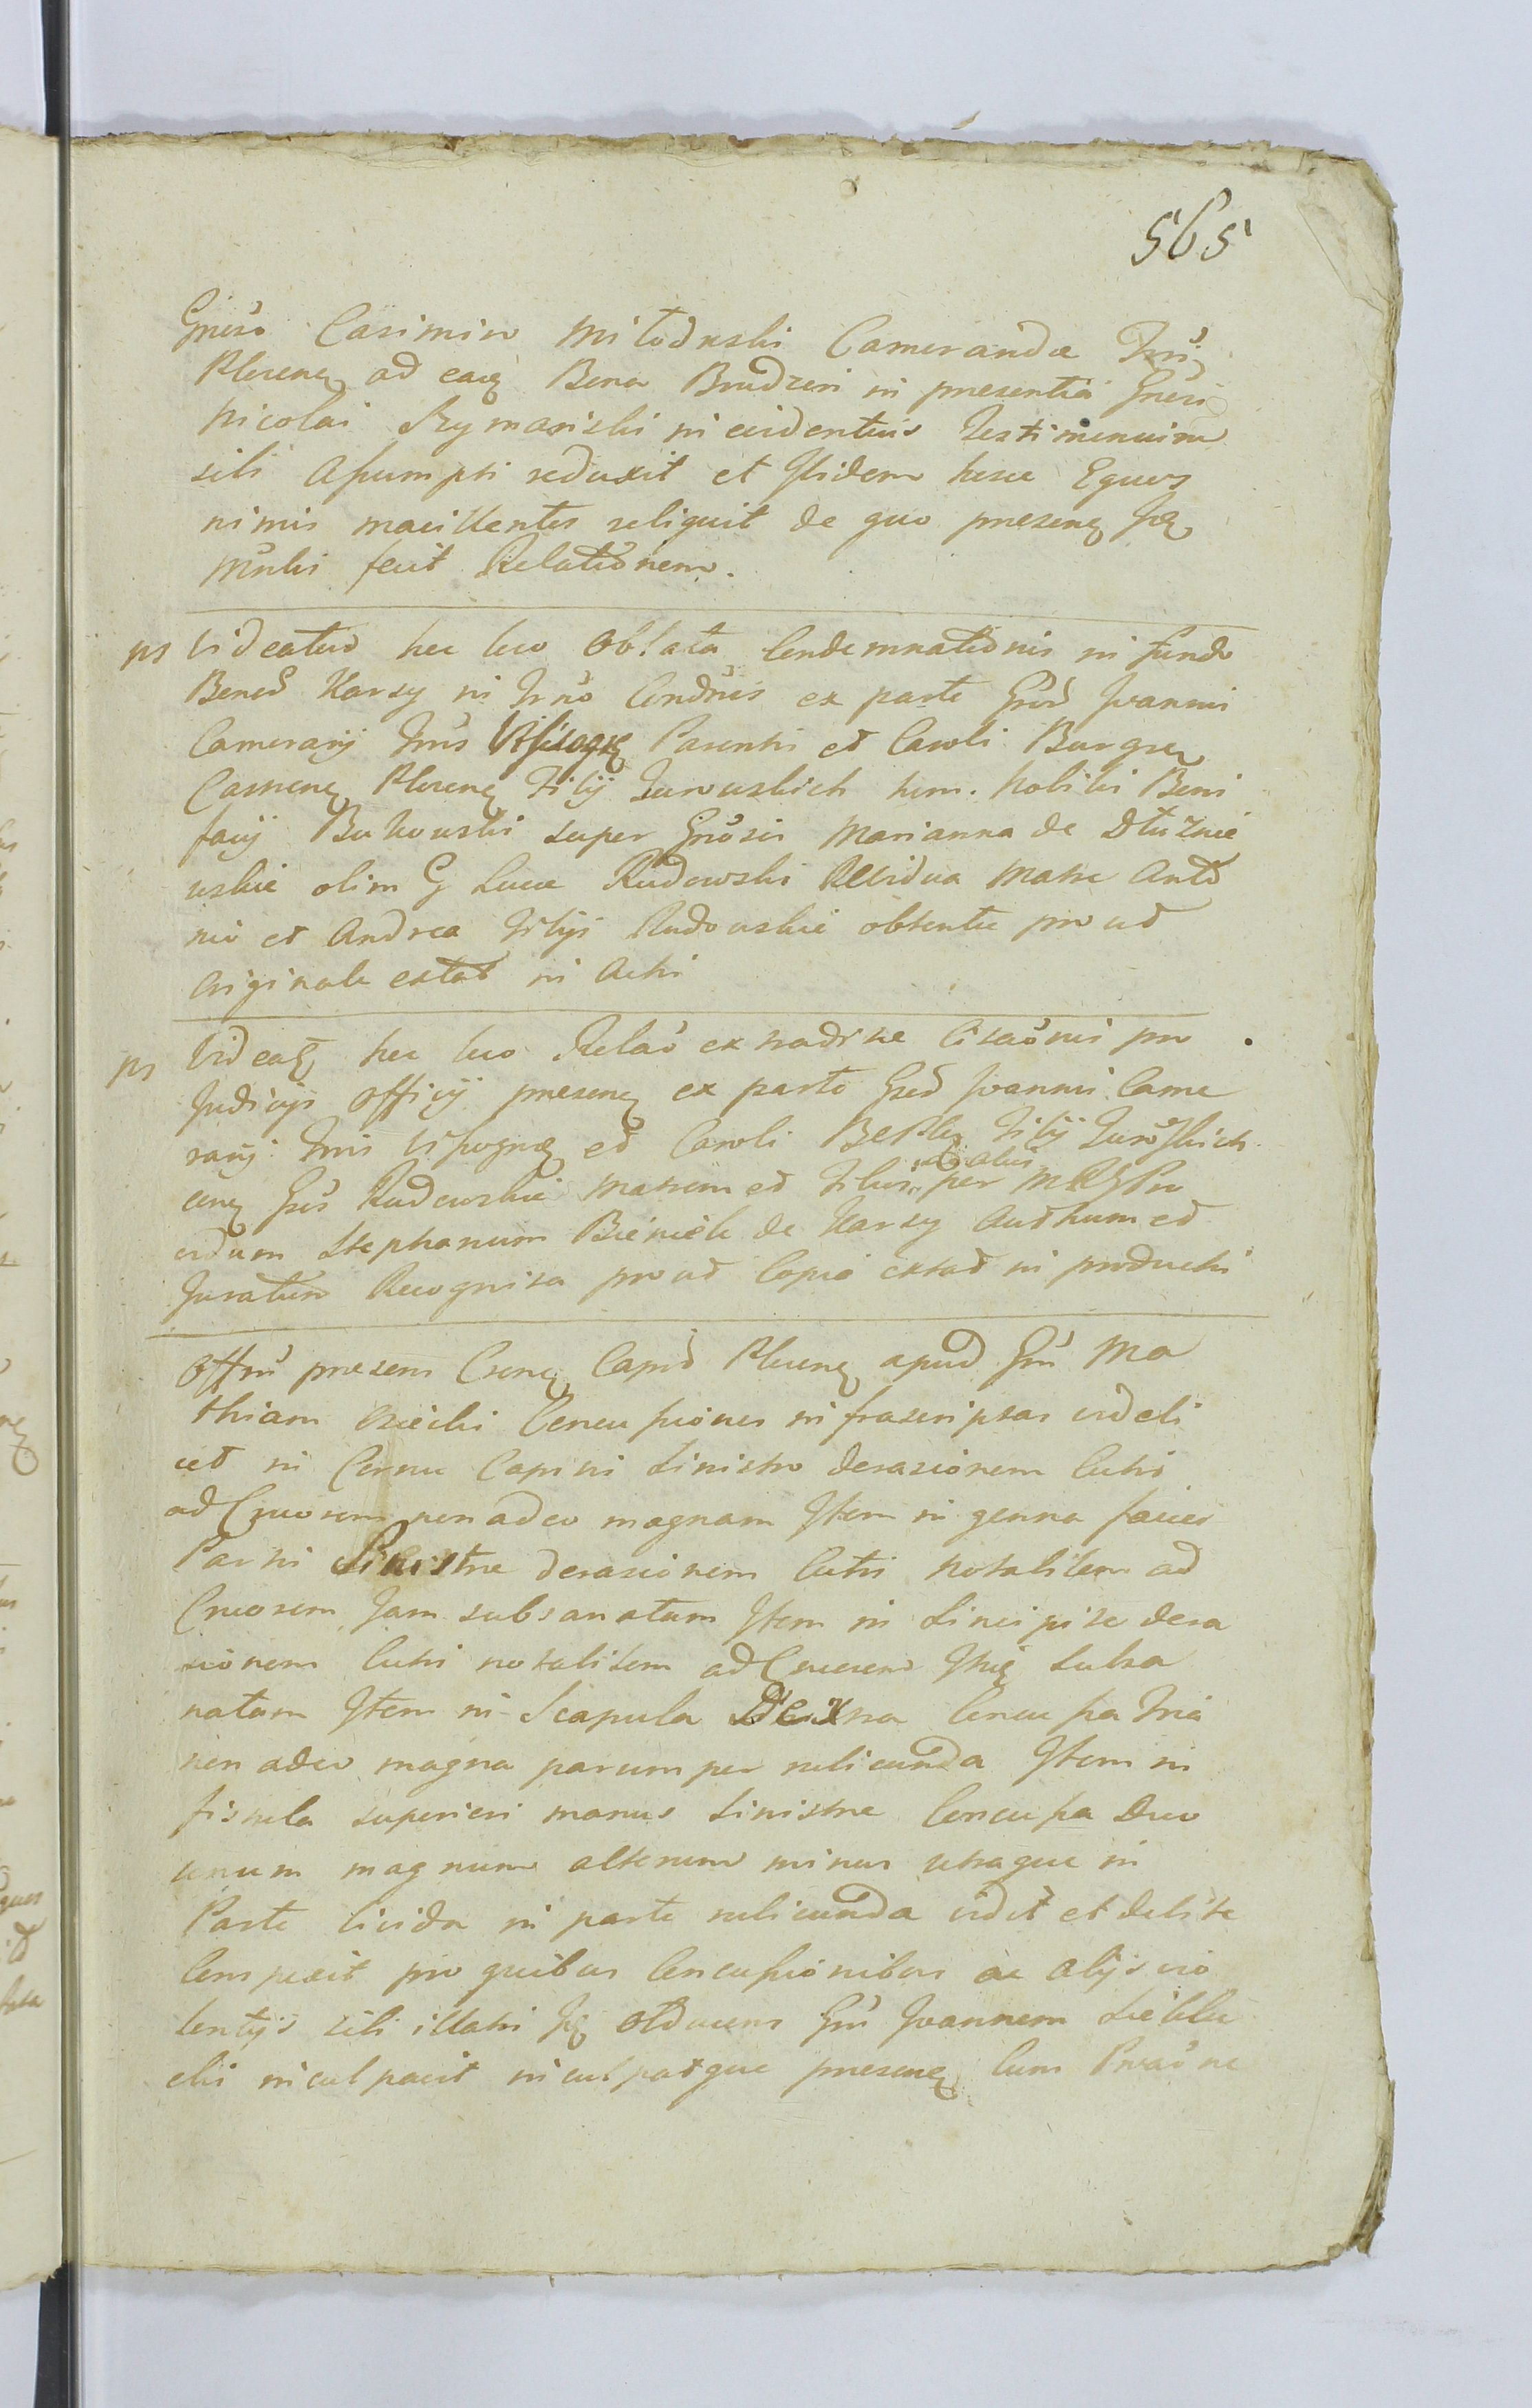 565
Gnoso Casimiro Miłoduski Camerandæ Trrū
Plocenę ad eaq Bona Brudzen in presentia Gnosi
Nicolai Szymański in evidentius Testimonium
sibi Assumpti reduxit et Ibidem hosce Equos
nimis macillentes reliquit de quo presenę Jdę
Mnlis fecit Relationem.
ns Videatur hec loco Oblata Condemnationis in fundo
Bonod Karsy in Trno Condnis ex parte Grod Joannis
Camerarij Trris Vissogrę Parentis et Caroli Burgrę
Castrenę Plocenę Filij Turowskich hon. Nobilis Boni
facij Bukowski super Gnosis Marianna de Dłużnie
wskie olim G Luca Rudowski Relidua Matre Anto
nio et Andrea Filijs Rudowskie obtente pro ut
Originale extat in Actis
ns Videatę hec loco Relaō extraditæ Citaōnis pro
Judicijs Officij presenę ex parte Grod Joannis Came
rarij Trris Visogrę et Caroli BePlę Filij Turoskich
conę Grs Rudowskie Matrem et Filios ad alios per MRGPro
vidum Stephanum Bieniek de Karsy Authum et
Juratum Recognita pro ut Copia extat in productis
Offm presens Crenę Capit Plocenę apud Gm Ma
thiam Osiecki Concussiones infrascriptas videli
cet in Cornu Capitis Sinistro derasionem Cutis
ad Cruorem non adeo magnam Item in genna faciei
Partis Sinistræ derasionem Cutis notabilem ad
Cruorem Jam subsanatam Item in Sincipite dera
sionem Cutis notabilem ad Cruorem Ibię Subsa
natam Item in Scapula Dextra Concussa Tria
non adeo magna parumper rubicunda Item in
fistula superiori manus Sinistræ Concussa Duo
unum magnum alterum minus utraque in
Parte livida in parte rubicunda vidit et debite
Conspexit pro quibus Concussionibus ac alijs vio
lentijs sibi illatis Jdę Obducens Gm Joannem Sieklu
cki inculpavit inculpatque presenę Cum Prvaōne